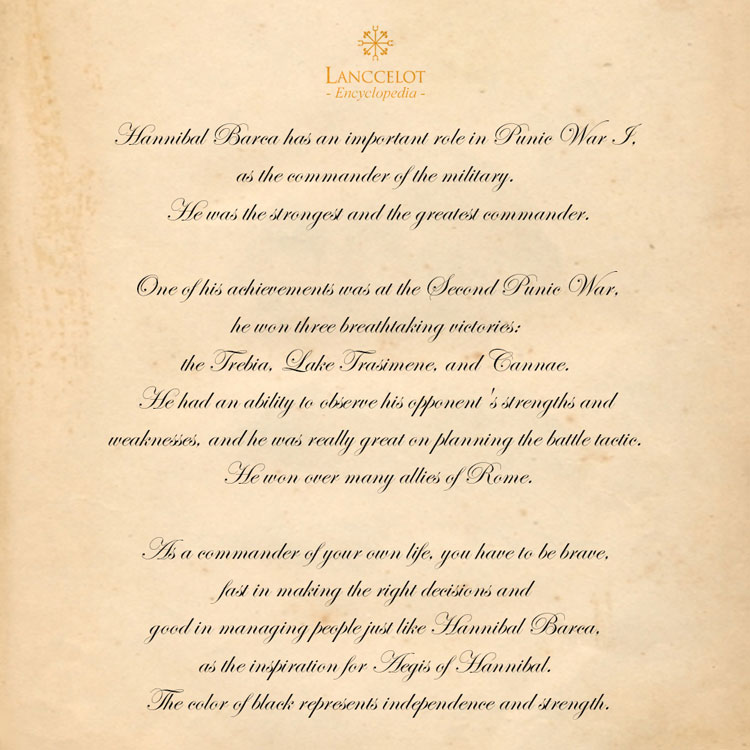 LANCCELOT
- Encyclopedia -
Hannibal Barca has an important role in Punic War I,
as the commander of the military.
He was the strongest and the greatest commander.
One of his achievements was at the Second Punic War,
he won three breathtaking victories:
the Trebia, Lake Trasimene, and Cannae.
He had an ability to observe his opponent 's strengths and
weaknesses, and he was really great on planning the battle tactic.
He won over many allies of Rome.
As a commander of your own life, you have to be brave,
fast in making the right decisions and
good in managing people just like Hannibal Barca,
as the inspiration for Aegis of Hannibal.
The color of black represents independence and strength.